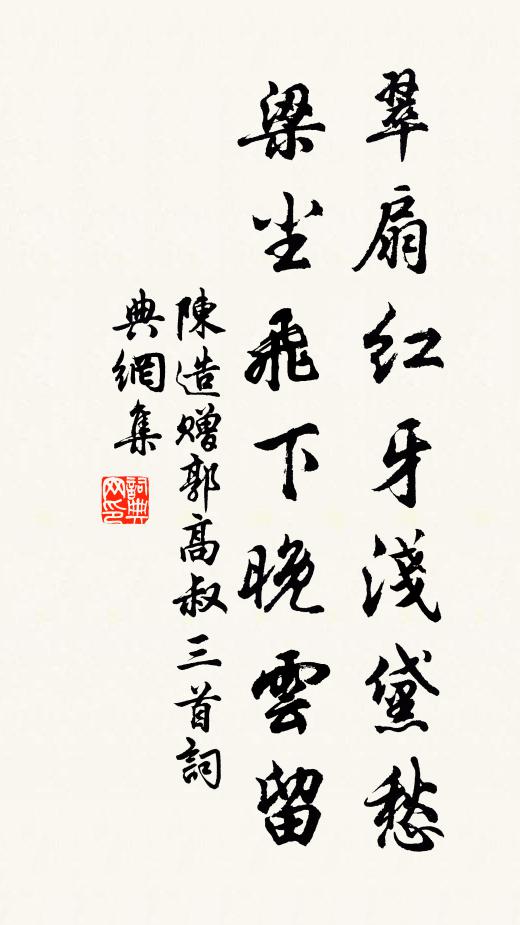 翠扇红牙淺黛愁
梁尘飛下晚雲留
陳造贈郭高叔三首詞
典網集
詞典
网印